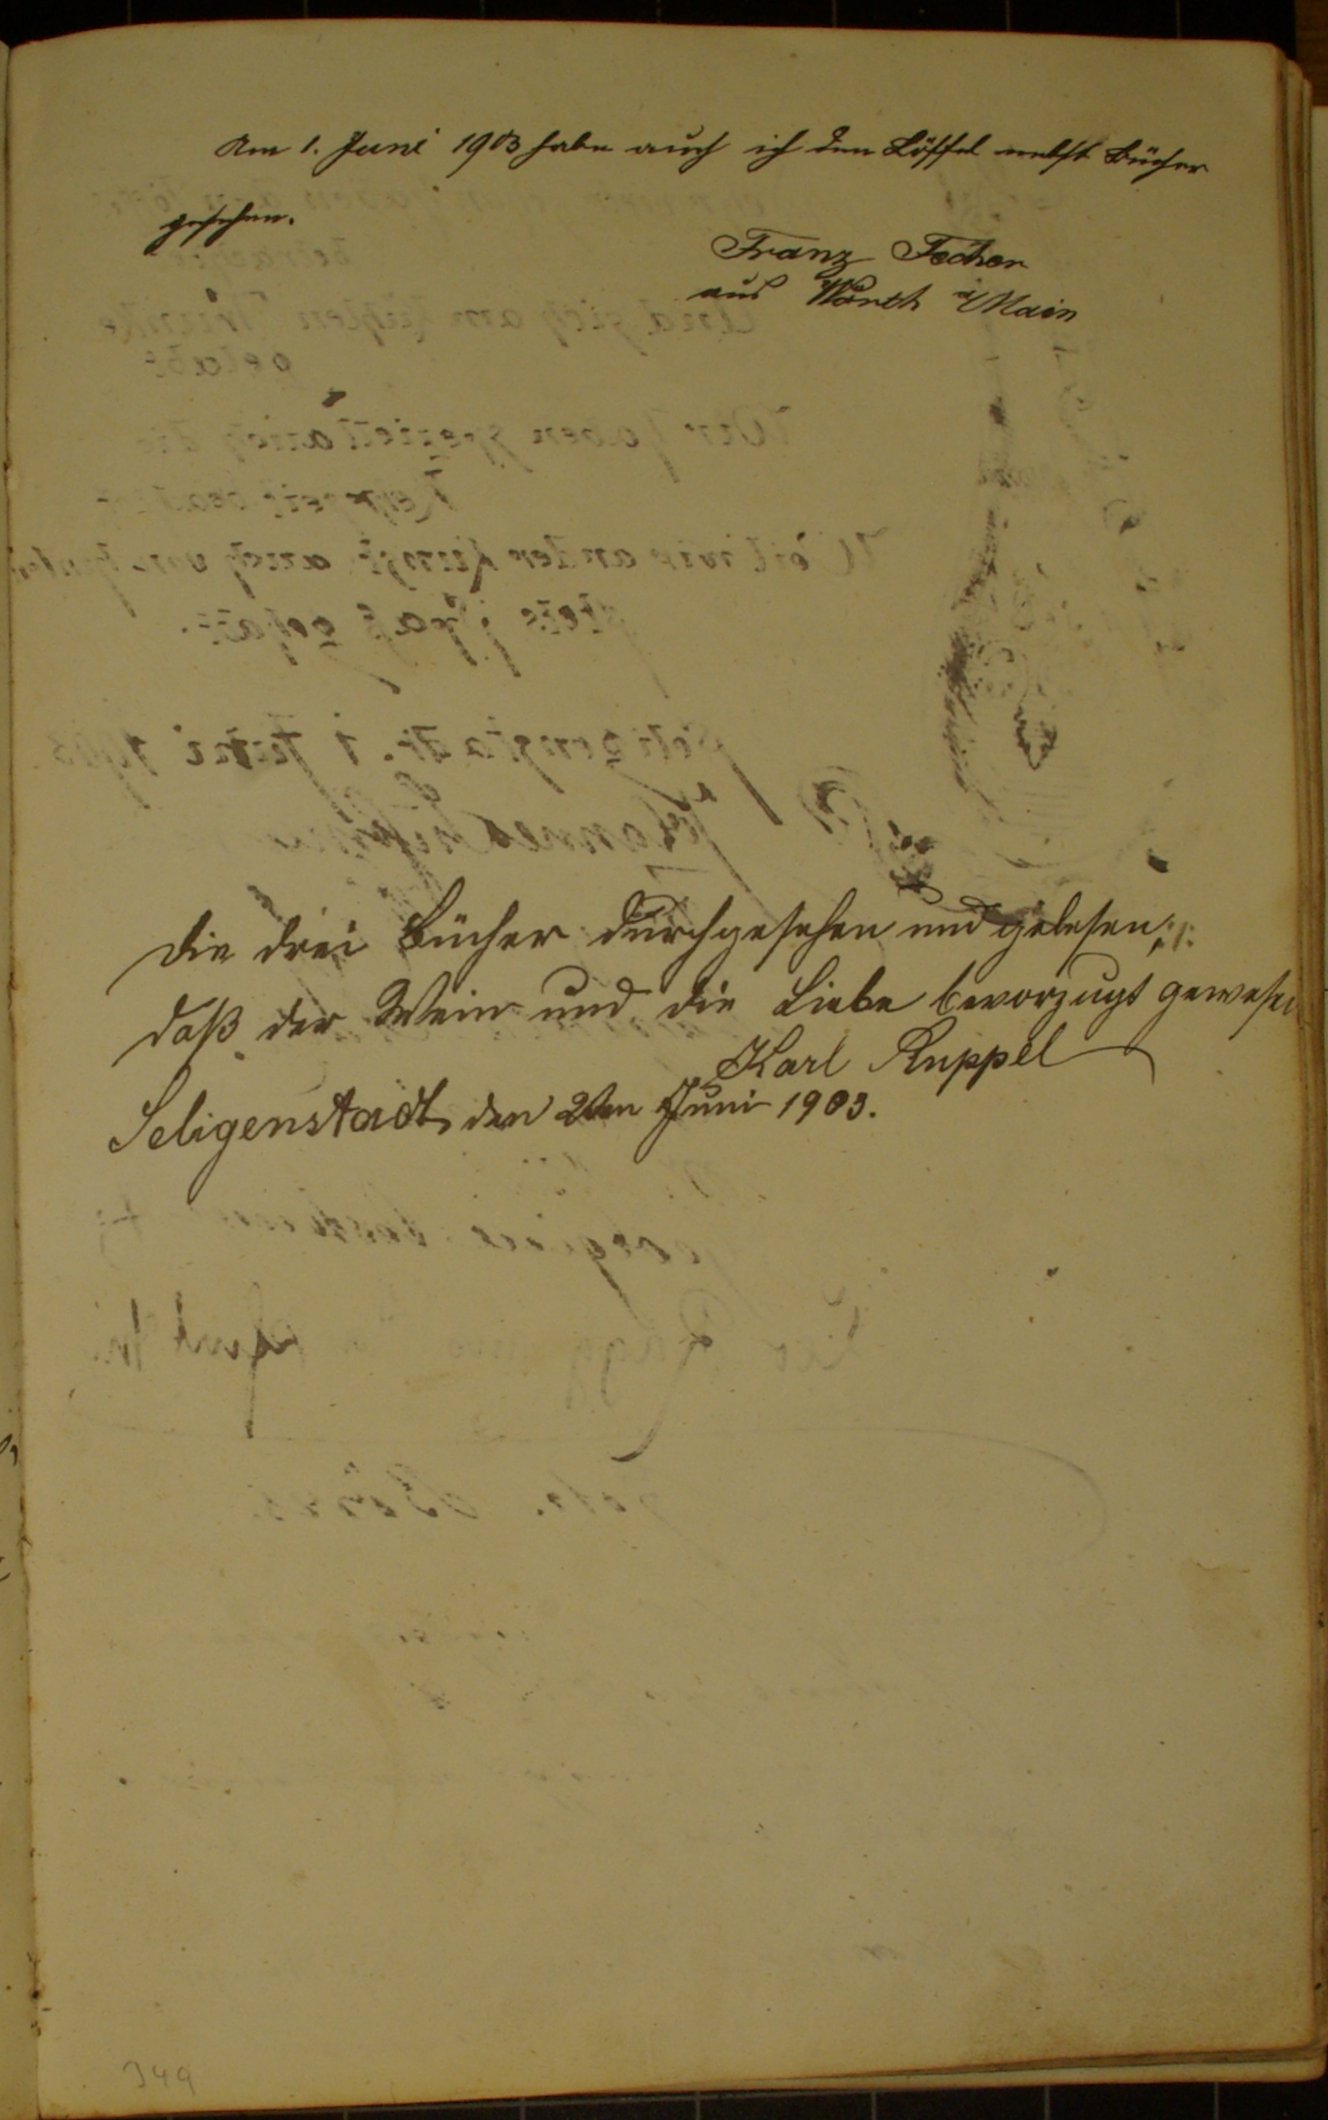 Am 1. Juni 1903 habe auch ich den Löffel nebst Bücher
gesehen.
Franz Fecher
aus Wörth a/Main
Die drei Bücher durchgesehen und gelesen,
daß der Wein und die Liebe bevorzugt gewesen
Karl Ruppel
Seligenstadt, den 2ten Juni 1903.
349